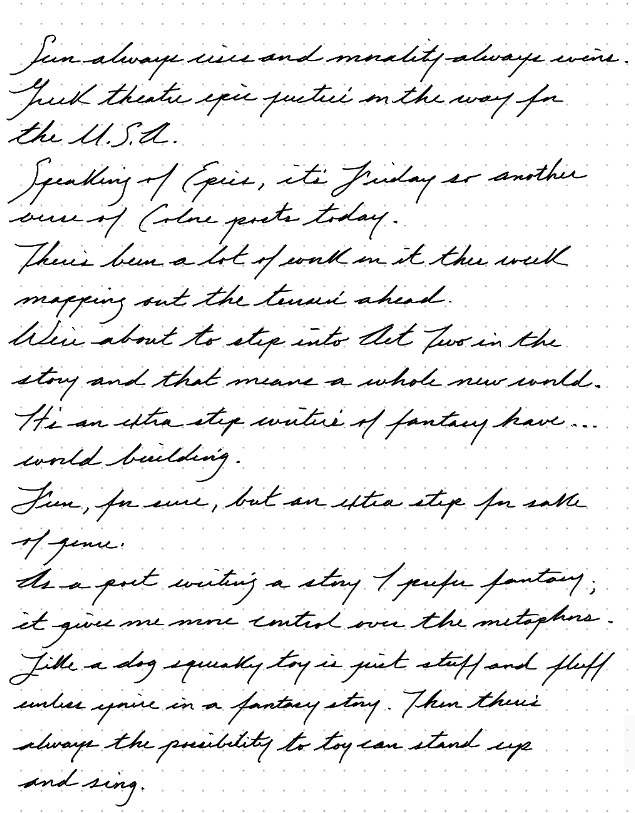 Sun always rises and morality always wins.
Greek theatre epic justice on the way for
the U.S.A.
Speaking of Epics, it's Friday so another
verse of posts today.
There's been a lot of work in it this week
mapping out the terrain ahead.
We're about to step into Act Two in the
story and that means a whole new world.
It's an extra step writers of fantasy have...
world building.
Fun, for sure, but an extra step for sake
of genre.
As a poet writing a story I prefer fantasy;
it gives me more control over the metaphors.
Like a dog squeaky toy is just stuff and fluff
unless you're in a fantasy story. Then there's
always the possibility to toy can stand up
and sing.